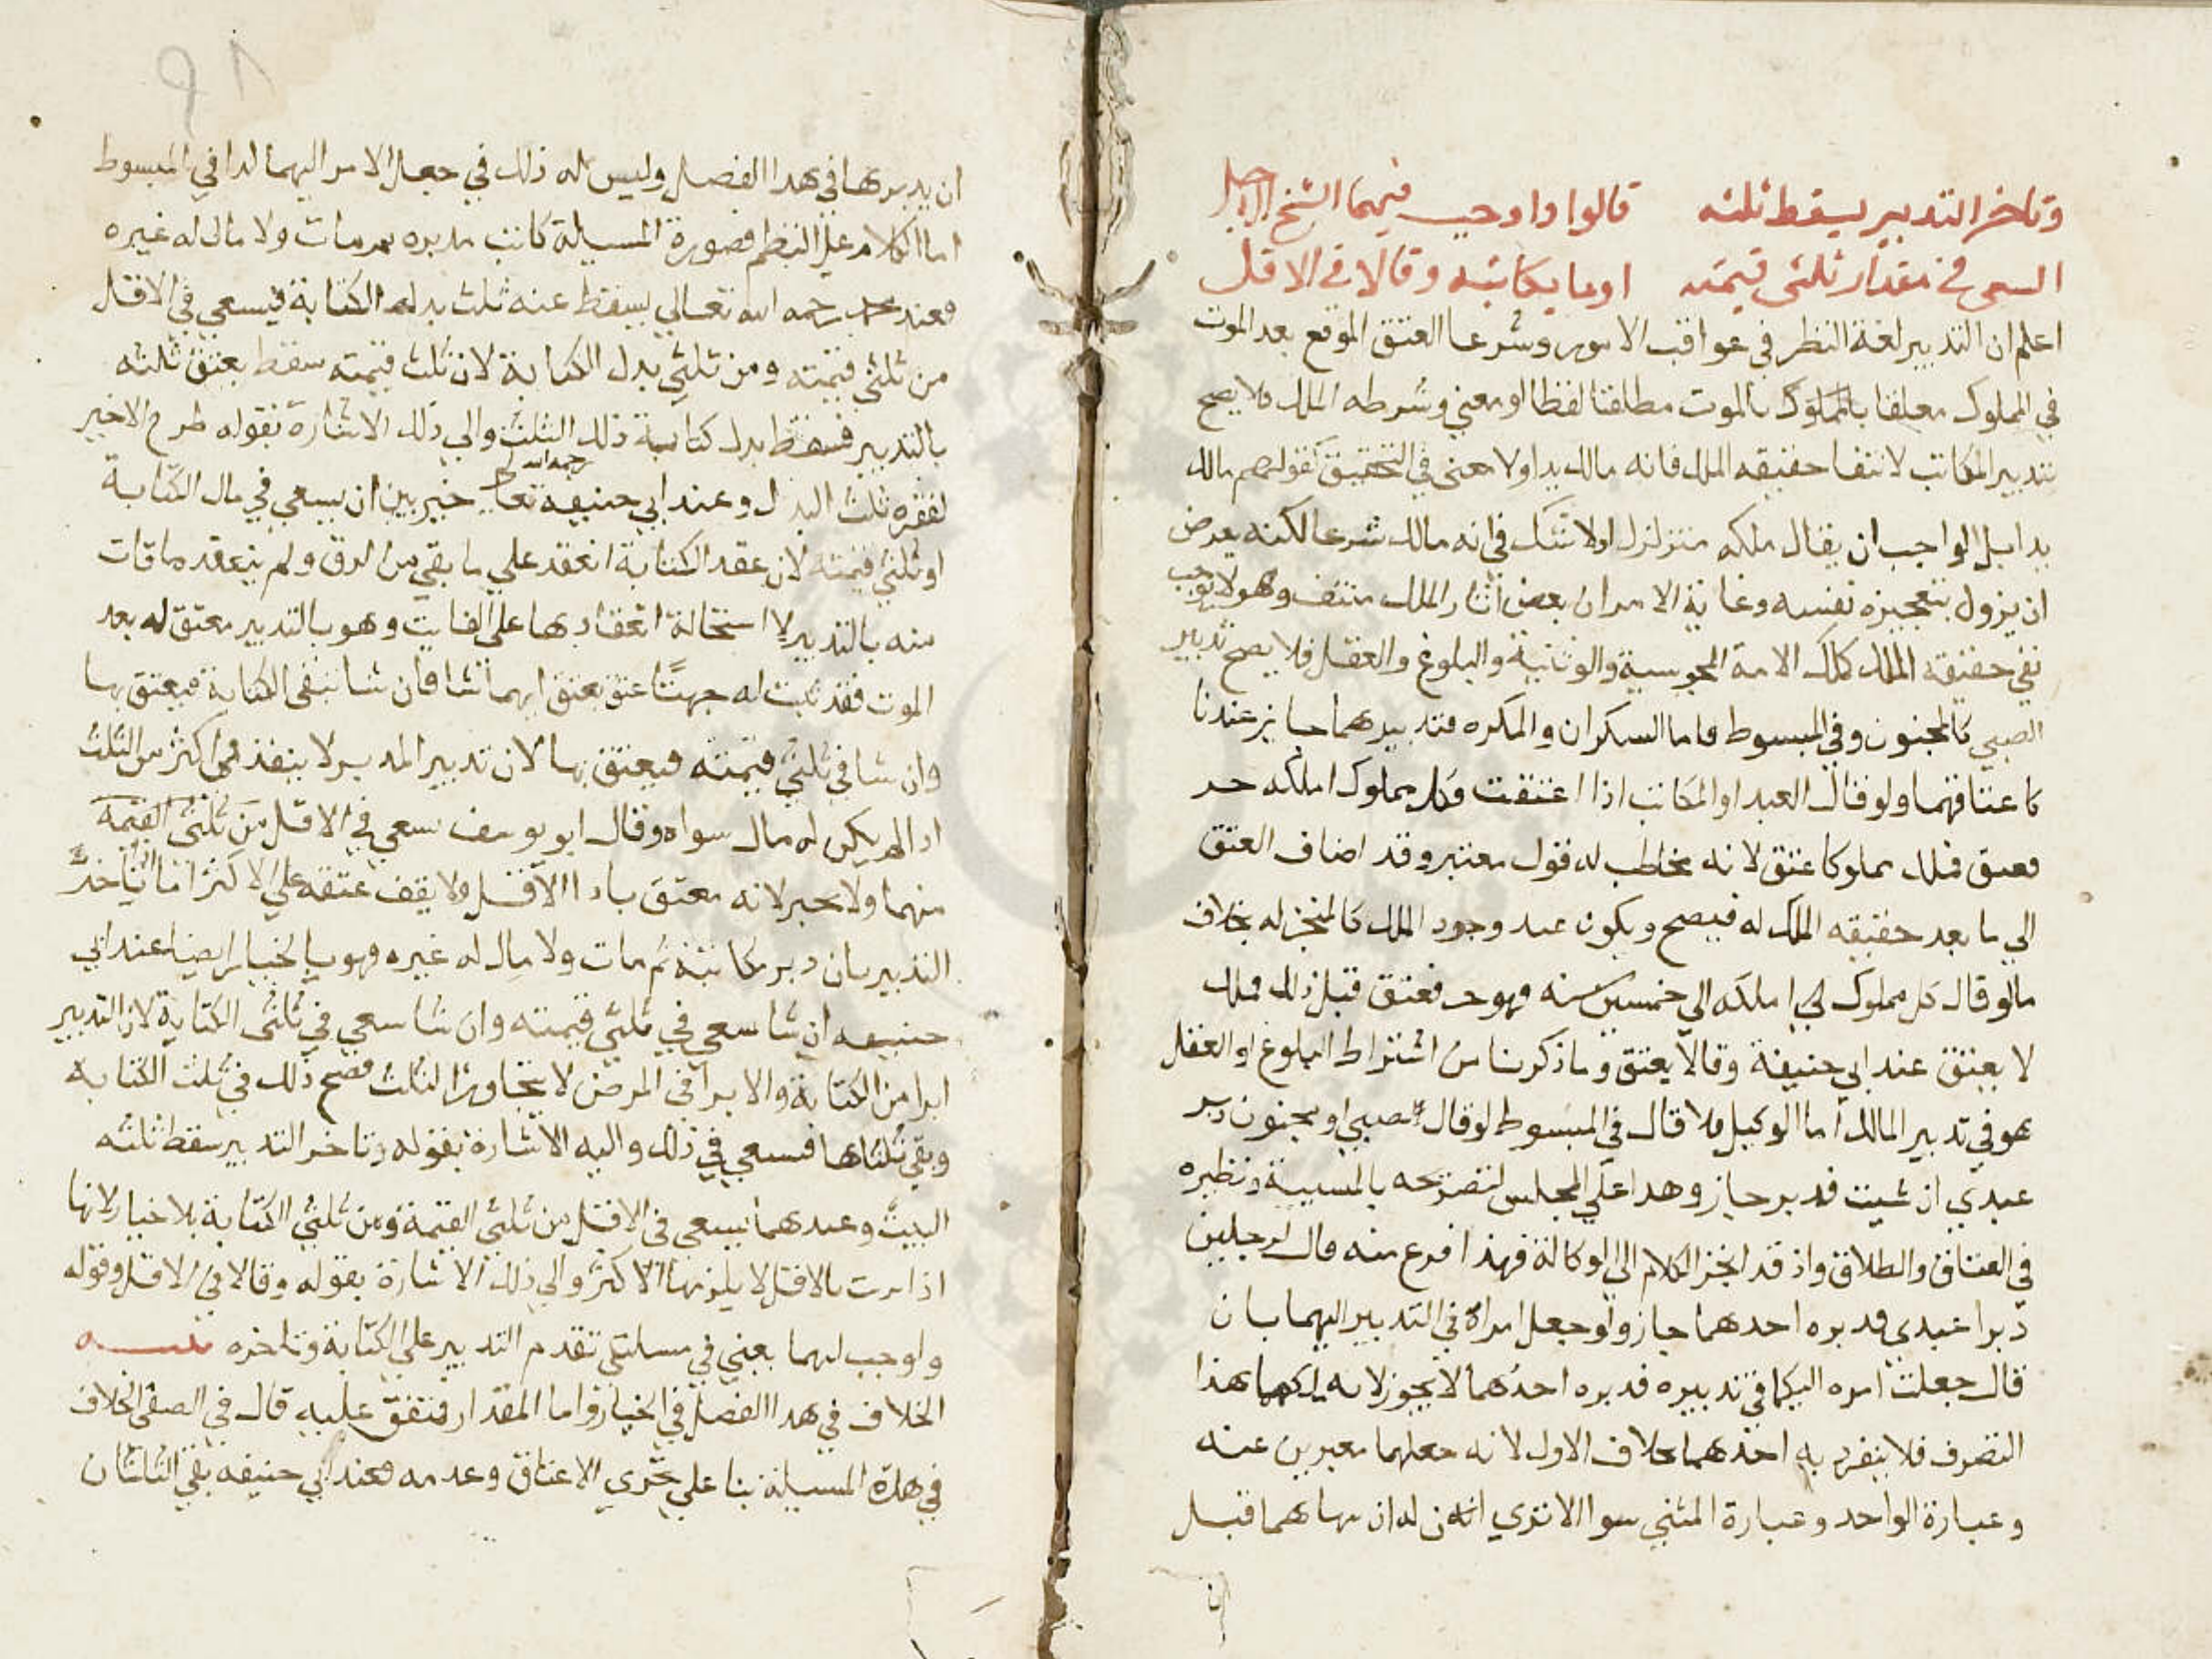 وتاخر التدبير يسقط ثلثه قالوا واوجب فيهما الشيخ الاجل
السعي في مقدار ثلثي قيمته او ما يكاتبه وقالا في الاقل
اعلم ان التدبير لغة النظر في عواقب الامور وشرعا العتق الموقع بعد الموت
في المملوك معلقا بالموت مطلقا لفظا او معني وشرطه الملك فلا يصح
تدبير المكاتب لانتفا حقيقه الملك فانه مالك يدا ولا معني في التحقيق لقولهم مالك
يدا بل الواجب ان يقال ملكه متزلزل اذ لا شك في انه مالك شرعا لكنه يعرض
ان يزول بتعجيزه نفسه وغاية الامر ان بعض اثار الملك منتف وهو لا يوجب
نفي حقيقه الملك كملك الامة المجوسية والوثنية والبلوغ والعقل فلا يصح تدبير
الصبي كالمجنون وفي المبسوط فاما السكران والمكره فتدبيرهما جايز عندنا
كاعتاقهما ولو قال العبد او المكاتب اذا اعتقت فكل مملوك املكه حر
فعتق فملك مملوكا عتق لانه مخاطب له قول معتبر وقد اضاف العتق
الي ما بعد حقيقه الملك له فيصح ويكون عند وجود الملك كالمنجز له بخلاف
ما لو قال كل مملوك لي املكه الي خمسين سنه فهو حر فعتق قبل ذلك فملك
لا يعتق عند ابي حنيفة وقالا يعتق وما ذكرنا من اشتراط البلوغ او العقل
هو في تدبير المالك اما الوكيل فلا قال في المبسوط لو قال لصبي او مجنون دبر
عبدي ان شيت فدبر جاز وهذا علي المجلس لتصريحه بالمسيية ونظيره
في العتاق والطلاق واذ قد انجز الكلام الي الوكالة فهذا فرع منه قال لرجلين
دبرا عبدي فدبره احدهما جاز ولو جعل امراه في التدبير اليهما بان
قال جعلت امره اليكما في تدبيره فدبره احدهما لا يجوز لانه ملكهما هذا
التصرف فلا ينفرد به احدهما بخلاف الاول لانه جعلهما معبرين عنه
وعبارة الواحد وعبارة المثني سوا الا تري ان له ان ينهاهما قبل
ان يدبرها في هدا الفصل وليس له ذلك في جعل الامر اليهما كدا في المبسوط
اما الكلام علي النظم فصورة المسيلة كاتب مدبره ثم مات ولا مال له غيره
فعند محمد رحمه الله تعالي يسقط عنه ثلث بدل الكتابة فيسعي في الاقل
من ثلثي قيمته ومن ثلثي بدل الكتابة لان ثلث قيمته سقط بعتق ثلثه
بالتدبير فسقط بدل كتابة ذلك الثلث والي ذلك الاشارة بقوله طرح الاخير
لفقره ثلث البدل وعند ابي حنيفه رحمه الله تعالي خير بين ان يسعي في مال الكتابة
او ثلثي قيمته لان عقد الكتابة انعقد علي ما بقي من الرق ولم ينعقد ما فات
منه بالتدبير لاستحالة انعقادها علي الفايت وهو بالتدبير معتق له بعد
الموت فقد ثبت له جهتا عتق يعتق ايهما شا فان شا تبقي الكتابة فيعتق بها
وان شا في ثلثي قيمته فيعتق بها لان تدبير المدبر لا ينفذ في اكثر من الثلث
اذا لم يكن له مال سواه وقال ابو يوسف يسعي في الاقل من ثلثي القيمة
منهما ولا يخير لانه معتق بادا الاقل ولا يقف عتقه علي الاكثر اما اذا تاخر
التدبير بان دبر مكاتبه ثم مات ولا مال له غيره فهو بالخيار ايضا عند ابي
حنيفه ان شا سعي في ثلثي قيمته وان شا سعي في ثلثي الكتابة لان التدبير
ابرا من الكتابة والابرا في المرض لا يتجاوز الثلث فصح ذلك في ثلث الكتابة
وبقي ثلثاها فسعي في ذلك واليه الاشارة بقوله وتاخر التدبير سقط ثلثه
البيت وعندهما يسعي في الاقل من ثلثي القيمة ومن ثلثي الكتابة بلا خيار لانها
اذا برت بالاقل لا يلزمها الاكثر والي ذلك الاشارة بقوله وقالا في الاقل وقوله
واوجب لهما يعني في مسلتي تقدم التدبير علي الكتابة وتاخره
الخلاف في هدا الفصل في الخيار واما المقدار فمتفق عليه قال في الصفي الخلاف
في هذه المسيلة بنا علي تجزي الاعتاق وعدمه فعند ابي حنيفه بقي الثلثان